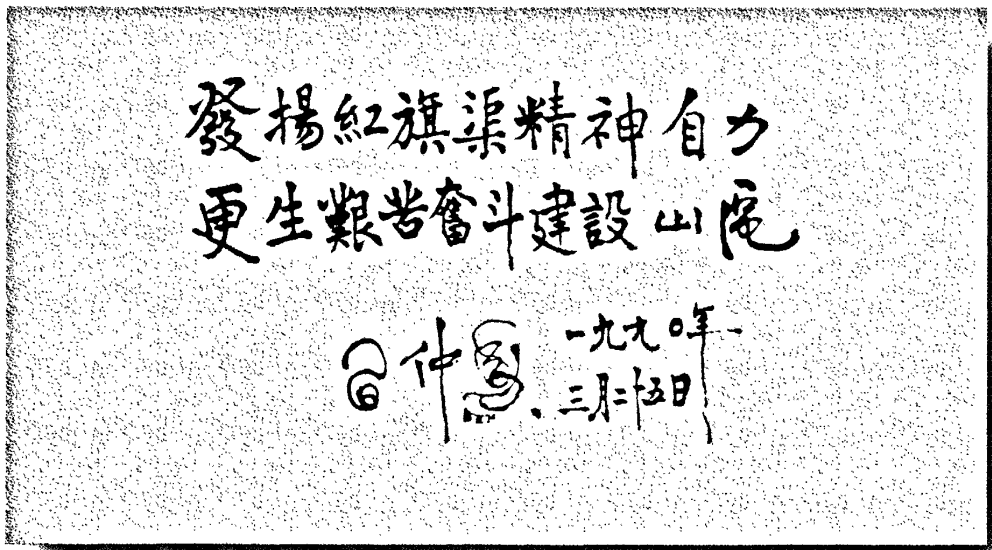 發揚紅旗渠精神自力
更生艱苦奮斗建設山區
習仲勳
一九九〇年
三月二十五日